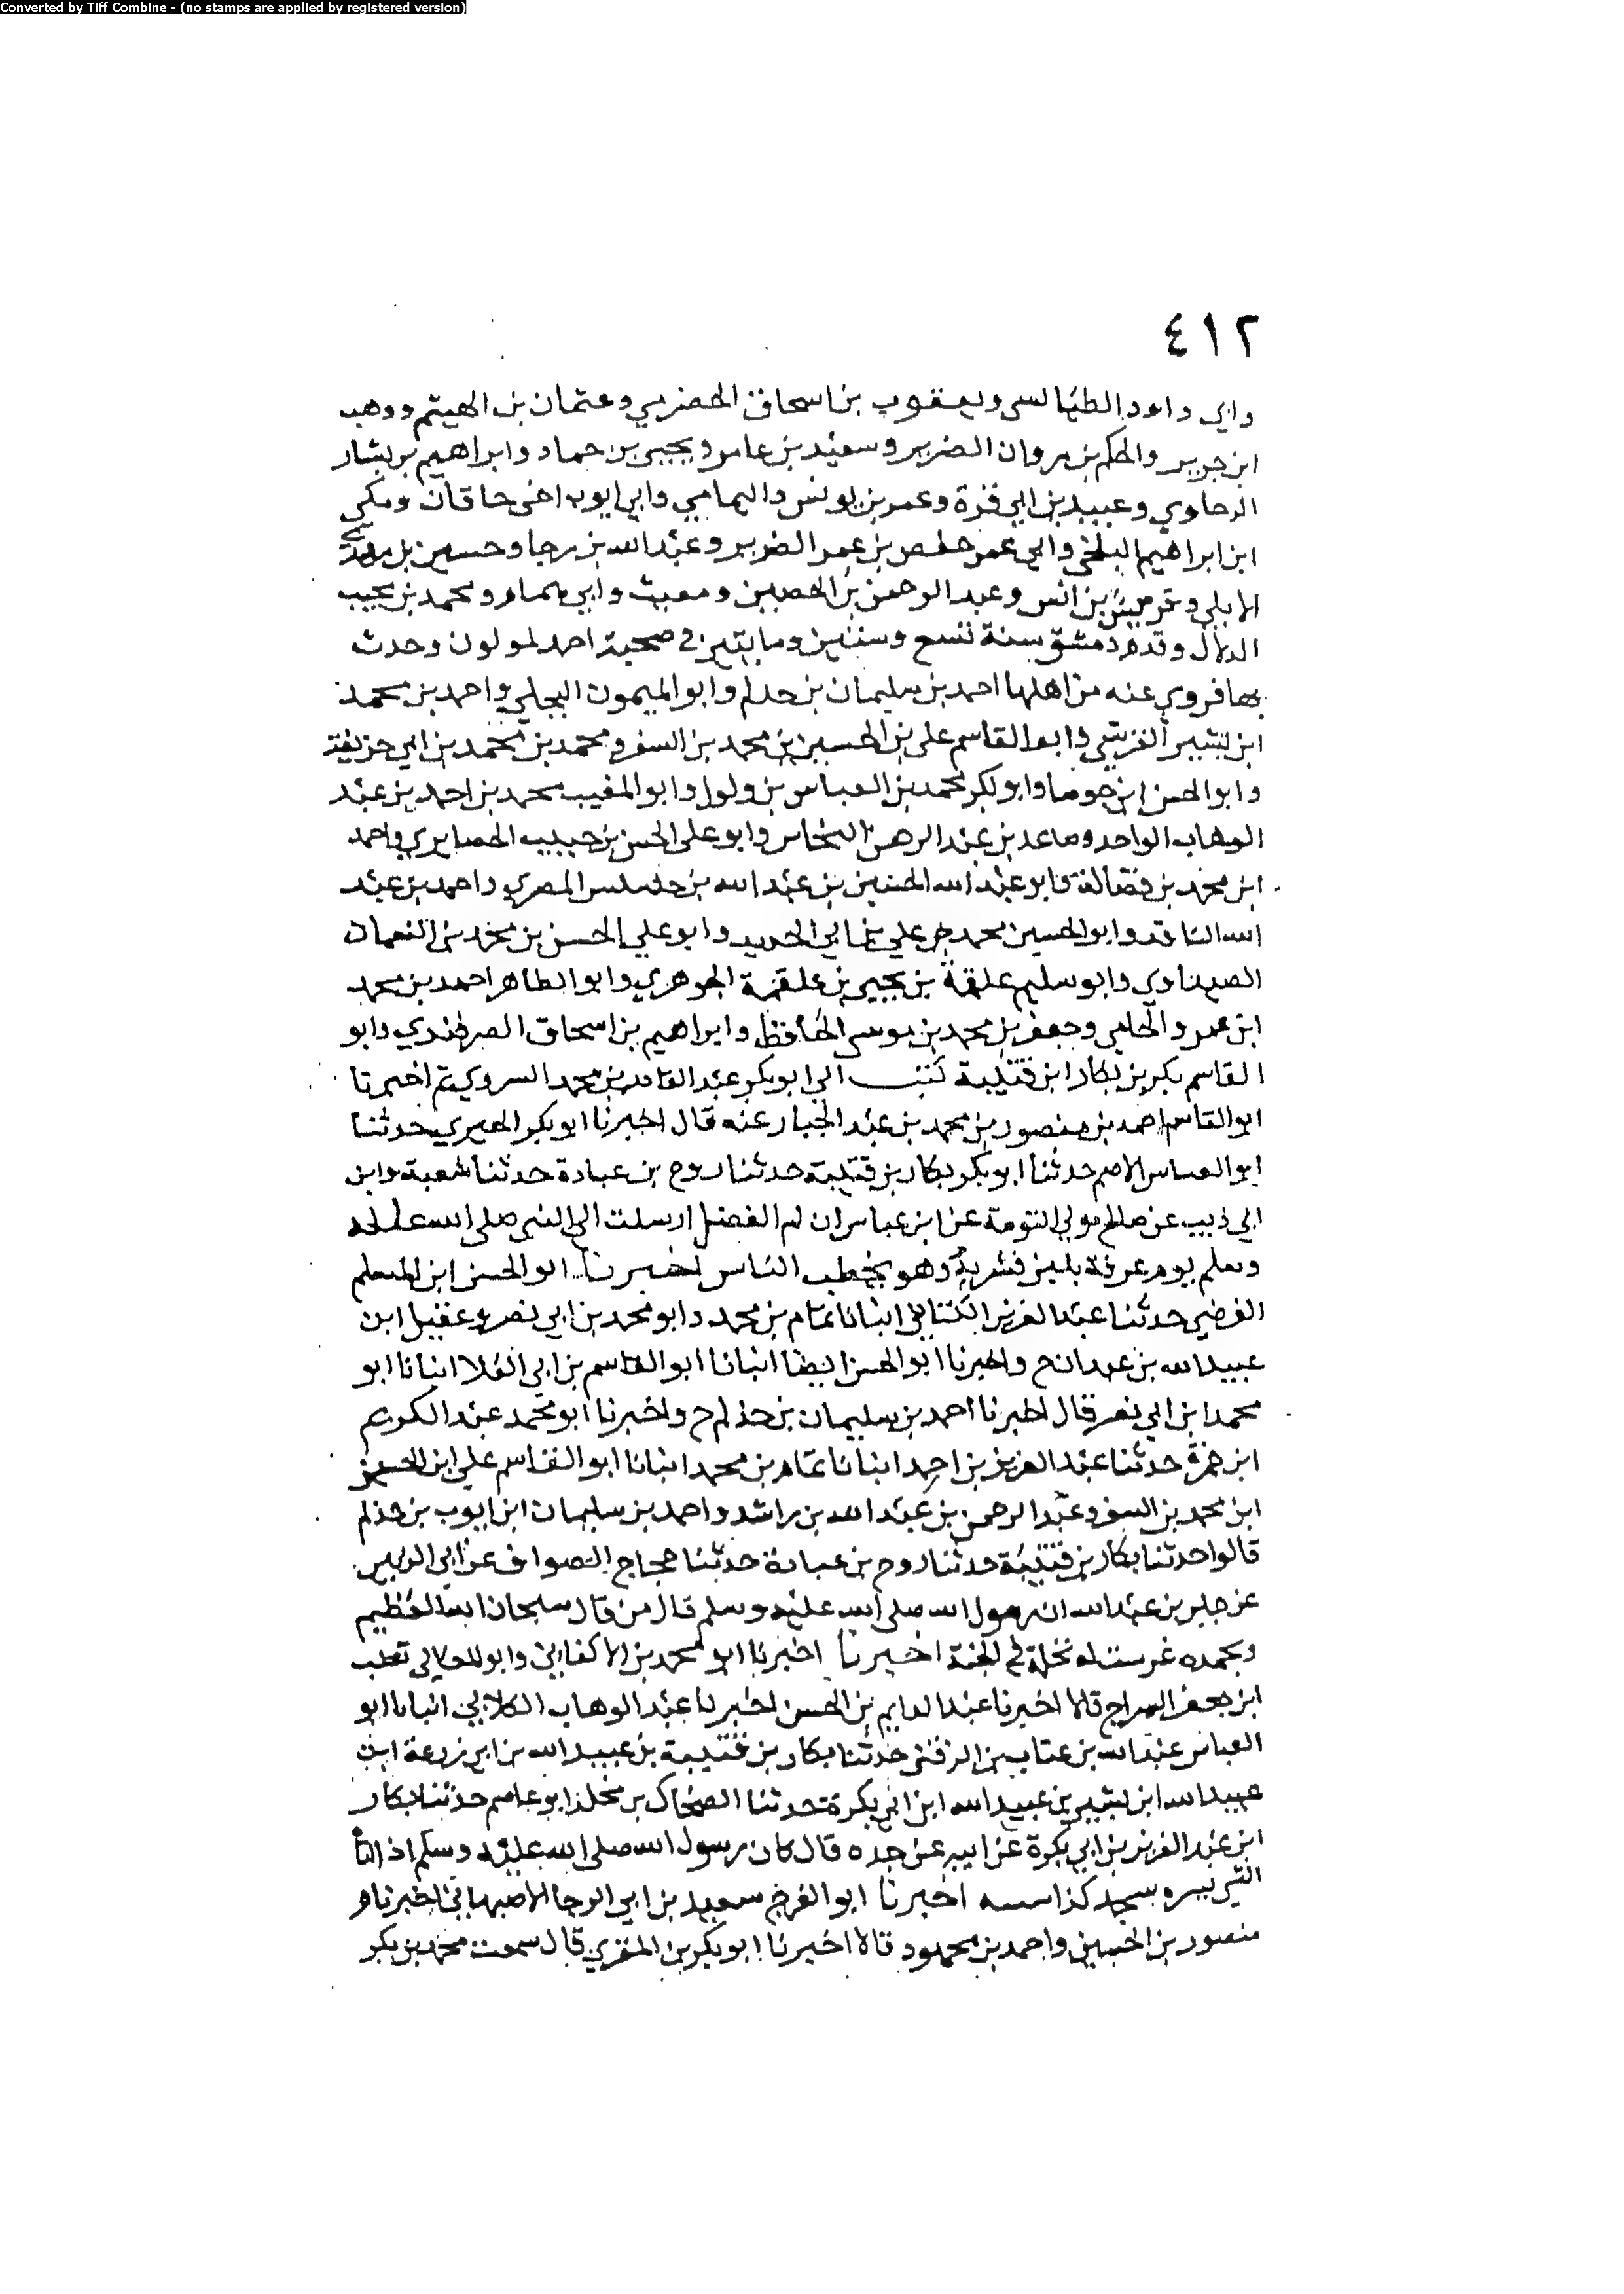 Converted by Tiff Combine - (no stamps are applied by registered version)
٤١٢
وابي داود الطيالسي ويعقوب بن اسحاق الحضرمي وعثمان بن الهيثم ووهب
ابن جرير والحكم بن مروان الضرير وسعيد بن عامر ويحيى بن حماد وابراهيم بن بشار
الرماوي وعبيد بن ابي قرة وعمر بن يونس واليمامي وابي ايوب اخى خاقان ومكى
ابن ابراهيم البلخى وابي عمر حفص بن عمر الضرير وعبد الله بن رجا وحسين بن
الابلي وقريش بن انس وعبد الرحمن بن الحصين وابي همام ومحمد بن محبب
الدلال وقدم دمشق سنة تسع وستين ومايتين في صحبة احمد لمولون وحدث
بها فروي عنه من اهلها احمد بن سليمان بن حدلم وابو الميمون البجلي واحمد بن محمد
ابن بشير القرشي وابو القاسم على بن الحسين بن محمد بن السفر ومحمد بن محمد بن ابي حزيفة
وابو الحسن ابن جوصا وابو بكر محمد بن العباس بن ولول وابو المغيب محمد بن احمد بن عبد
الوهاب الواحد وصاعد بن عبد الرحمن النخاس وابو على الحسن بن حبيب الحصايري واحمد
ابن محمد بن فضالة وابو عبد الله الحسين بن عبد الله بن المصري واحمد بن عبد
الله الناقد وابو الحسين محمد بن علي بن ابي الحديد وابو علي الحسن بن محمد بن النعمان
الصيداوي وابو سليم علقمة بن يحيى بن علقمة الجوهري وابو الطاهر احمد بن محمد
ابن عمرو الخامي وجعفر بن محمد بن موسى الحافظ وابراهيم بن اسحاق الصرفندي وابو
القاسم بكر بن بكار ابن قتيبة كتب الي ابو بكر عبد الغافر بن محمد السروي ثم اخبرنا
ابو القاسم احمد بن منصور بن محمد بن عبد الجبار عنه قال اخبرنا ابو بكر الحيري حدثنا
ابو العباس الاصم حدثنا ابو بكر بكار بن قتيبة حدثنا روح بن عبادة حدثنا شعبة وابن
ابي ذييب عن صالح مولي التومة عن ابن عباس ان ام الفضل ارسلت الي النبي صلى الله عليه
وسلم يوم عرفة بلبن فشربه وهو يخطب الناس اخبرنا ابو الحسن ابن المسلم
الفرضي حدثنا عبد العزيز الكتاني انبانا تمام بن محمد وابو محمد بن ابي نصر وعقيل ابن
عبيد الله بن عبدان ح واخبرنا ابو الحسن ايضا انبانا ابو القاسم بن ابي العلا انبانا ابو
محمد ابن ابي نصر قال اخبرنا احمد بن سليمان بن حذلم ح واخبرنا ابو محمد عبد الكريم
ابن حمزة حدثنا عبد العزيز بن احمد انبانا تمام بن محمد انبانا ابو القاسم علي ابن الحسين
ابن محمد بن السفر وعبد الرحمن بن عبد الله بن راشد واحمد بن سليمان ابن ايوب بن حذلم
قالوا حدثنا بكار بن قتيبة حدثنا روح بن عبادة حدثنا حجاج الصواف عن ابي الزبير
عن جابر بن عبد الله ان رسول الله صلى الله عليه وسلم قال من قال سبحان الله العظيم
وبحمده غرست له نخلة في الجنة اخبرنا اخبرنا ابو محمد بن الاكفاني وابو المعالي تغلب
ابن جعفر السراج قالا اخبرنا عبد الدايم بن الحسن اخبرنا عبد الوهاب الكلابي انبانا ابو
العباس عبد الله بن عتاب بن الزفتي حدثنا بكار بن قتيبة بن عبيد الله بن ابي زرعة ابن
عبيد الله ابن بشير بن عبيد الله ابن ابي بكرة حدثنا الضحاك بن مخلد ابو عاصم حدثنا بكار
ابن عبد العزيز بن ابي بكرة عن ابيه عن جده قال كان رسول الله صلى الله عليه وسلم اذا اتا
الشي يسره سجد كذا اخبرنا ابو الفرج سعيد بن ابي الرجا الاصبهاني اخبرنا
منصور بن الحسين واحمد بن محمود قالا اخبرنا ابو بكر بن المقري قال سمعت محمد بن بكر